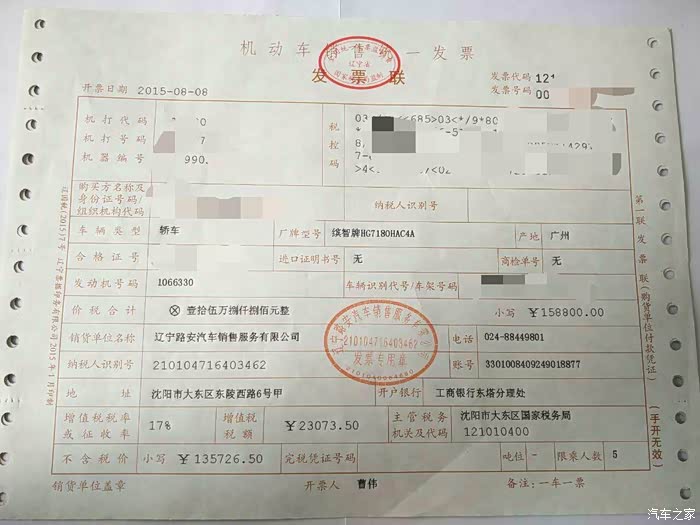 机动车销售统一发票
发票联
开票日期 2015-08-08
发票代码 12
发票号码 00
机打代码
机打号码
机器编号 990.
税控码
购买方名称及身份证号码/组织机构代码
纳税人识别号
车辆类型 轿车 厂牌型号 缤智牌HG7180HAC4A 产地 广州
合格证号 进口证明书号 无 商检单号 无
发动机号码 1066330 车辆识别代号/车架号码
价税合计 ⊗壹拾伍万捌仟捌佰元整 小写 ￥158800.00
销货单位名称 辽宁路安汽车销售服务有限公司 电话 024-88449801
纳税人识别号 210104716403462 账号 3301008409249018877
地址 沈阳市大东区东陵西路6号甲 开户银行 工商银行东塔分理处
增值税税率或征收率 17% 增值税税额 ￥23073.50 主管税务机关及代码 沈阳市大东区国家税务局 121010400
不含税价 小写 ￥135726.50 完税凭证号码 吨位 - 限乘人数 5
销货单位盖章 开票人 曹伟 备注：一车一票
第一联 发票联（购货单位付款凭证）
（手开无效）
辽宁路安汽车销售服务有限公司
210104716403462
发票专用章
辽宁省
汽车之家